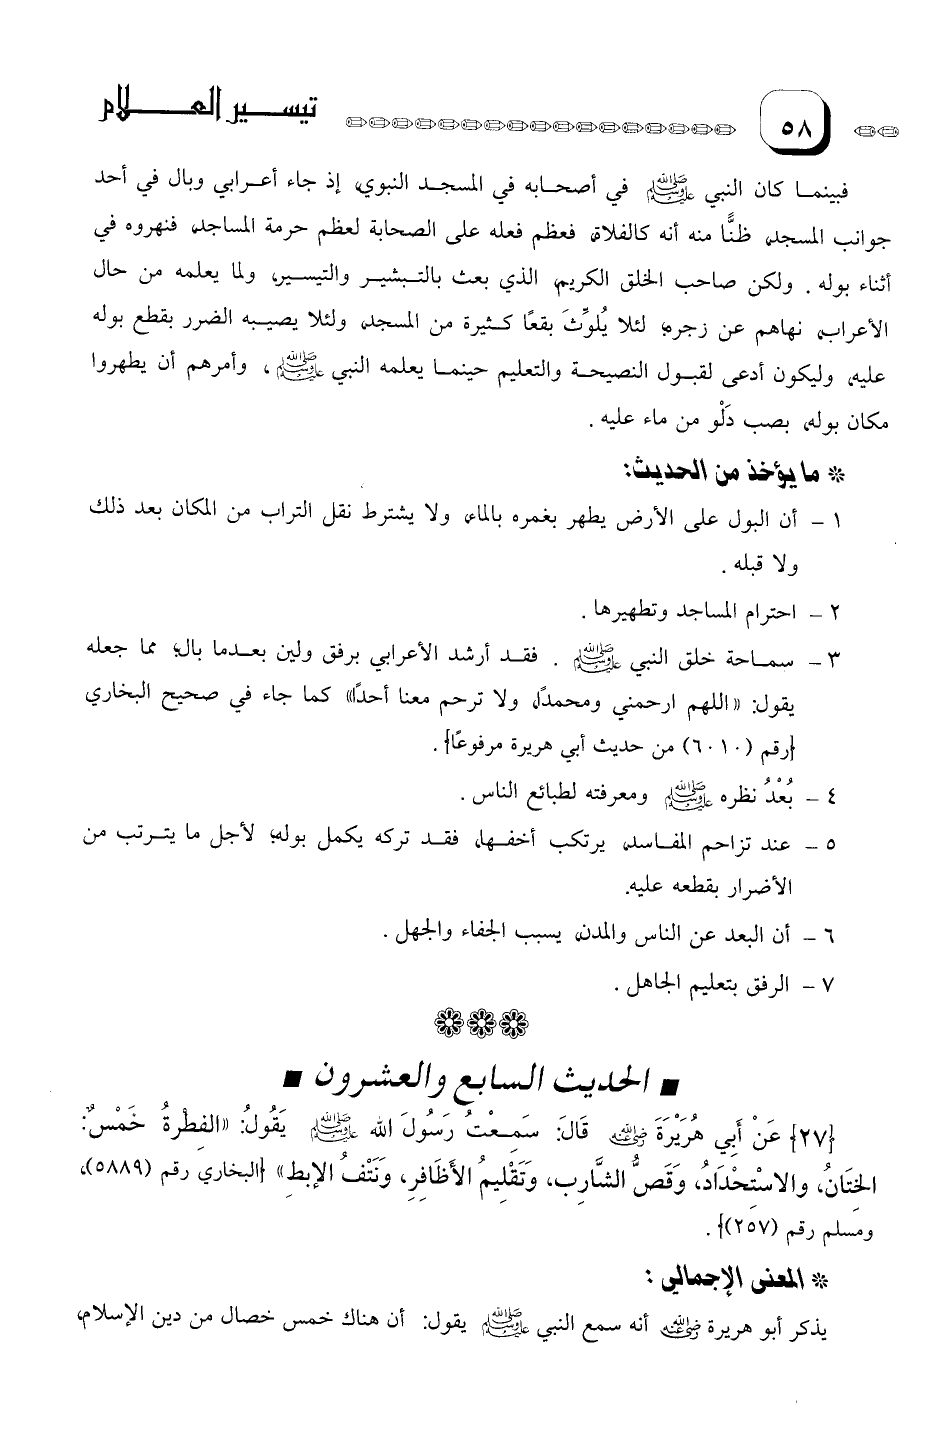 ٥٨ تيسير العلام
فبينما كان النبي ﷺ في أصحابه في المسجد النبوي، إذ جاء أعرابي وبال في أحد
جوانب المسجد، ظنًّا منه أنه كالفلاة، فعظم فعله على الصحابة لعظم حرمة المساجد، فنهروه في
أثناء بوله . ولكن صاحب الخلق الكريم، الذي بعث بالتبشير والتيسير، ولما يعلمه من حال
الأعراب، نهاهم عن زجره؛ لئلا يُلوِّثَ بقعًا كثيرة من المسجد، ولئلا يصيبه الضرر بقطع بوله
عليه، وليكون أدعى لقبول النصيحة والتعليم حينما يعلمه النبي ﷺ ، وأمرهم أن يطهروا
مكان بوله، بصب دَلْو من ماء عليه .
* ما يؤخذ من الحديث:
١ – أن البول على الأرض يطهر بغمره بالماء، ولا يشترط نقل التراب من المكان بعد ذلك
ولا قبله .
٢ – احترام المساجد وتطهيرها .
٣ – سماحة خلق النبي ﷺ . فقد أرشد الأعرابي برفق ولين بعدما بال؛ مما جعله
يقول: «اللهم ارحمني ومحمدًا، ولا ترحم معنا أحدًا» كما جاء في صحيح البخاري
{رقم (٦٠١٠) من حديث أبي هريرة مرفوعًا} .
٤ – بُعْدُ نظره ﷺ ومعرفته لطبائع الناس .
٥ – عند تزاحم المفاسد، يرتكب أخفها، فقد تركه يكمل بوله؛ لأجل ما يترتب من
الأضرار بقطعه عليه.
٦ – أن البعد عن الناس والمدن، يسبب الجفاء والجهل .
٧ – الرفق بتعليم الجاهل .
■ الحديث السابع والعشرون ■
{٢٧} عَنْ أَبِي هُرَيْرَةَ رضي الله عنه قَالَ: سَمِعْتُ رَسُولَ الله ﷺ يَقُولُ: «الفِطْرةُ خَمْسٌ:
الخِتَانُ، والاسْتِحْدَادُ، وَقَصُّ الشَّارِبِ، وَتَقْلِيمُ الأَظَافِرِ، وَنَتْفُ الإِبطِ» {البخاري رقم (٥٨٨٩)،
ومسلم رقم (٢٥٧)} .
* المعنى الإجمالي :
يذكر أبو هريرة رضي الله عنه أنه سمع النبي ﷺ يقول: أن هناك خمس خصال من دين الإسلام،